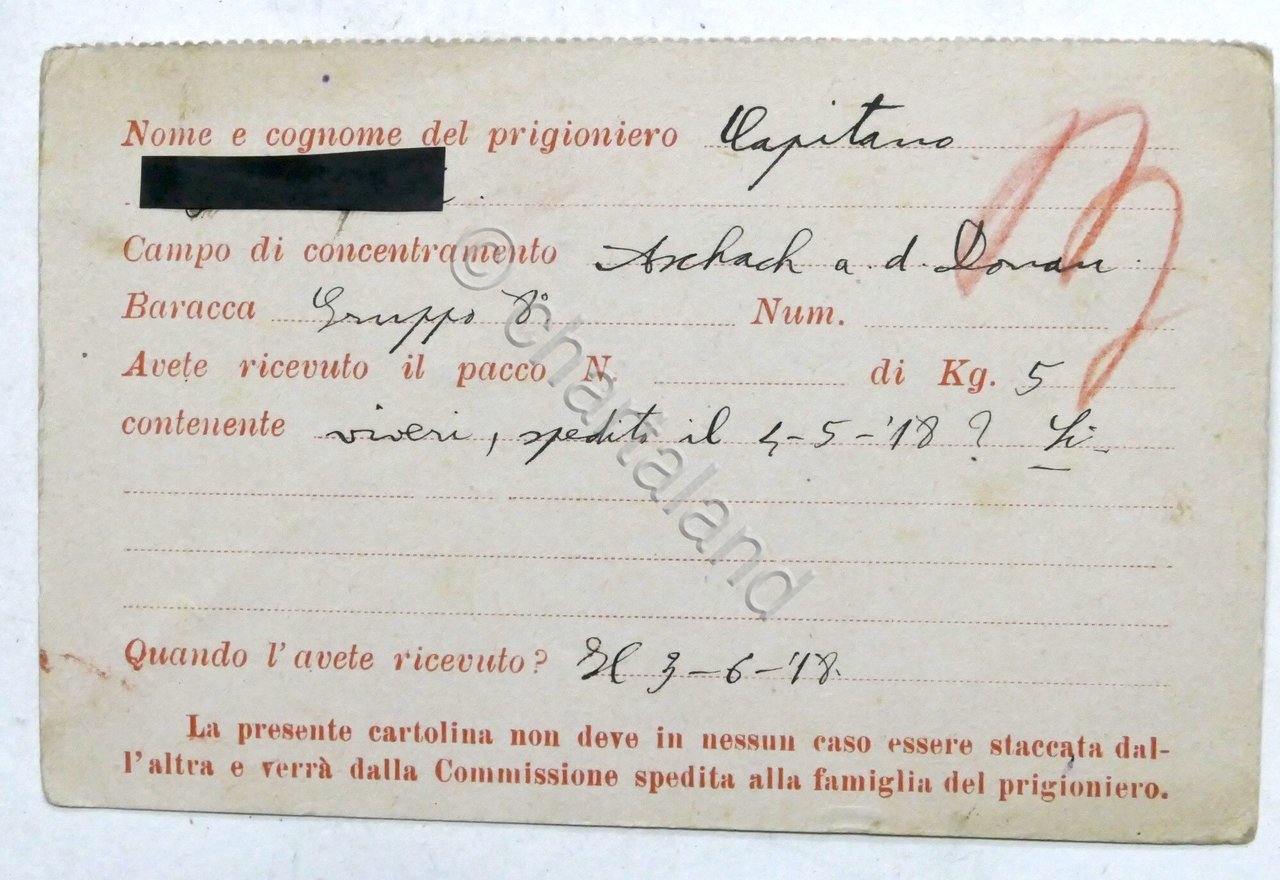 Nome e cognome del prigioniero Capitano
Campo di concentramento Aschach a. d. Donau.
Baracca Gruppo 8º. Num.
Avete ricevuto il pacco N. di Kg. 5
contenente viveri, spedito il 4-5-'18? Si-
Quando l'avete ricevuto? Il 3-6-'18.
La presente cartolina non deve in nessun caso essere staccata dal-
l'altra e verrà dalla Commissione spedita alla famiglia del prigioniero.
© chartaland